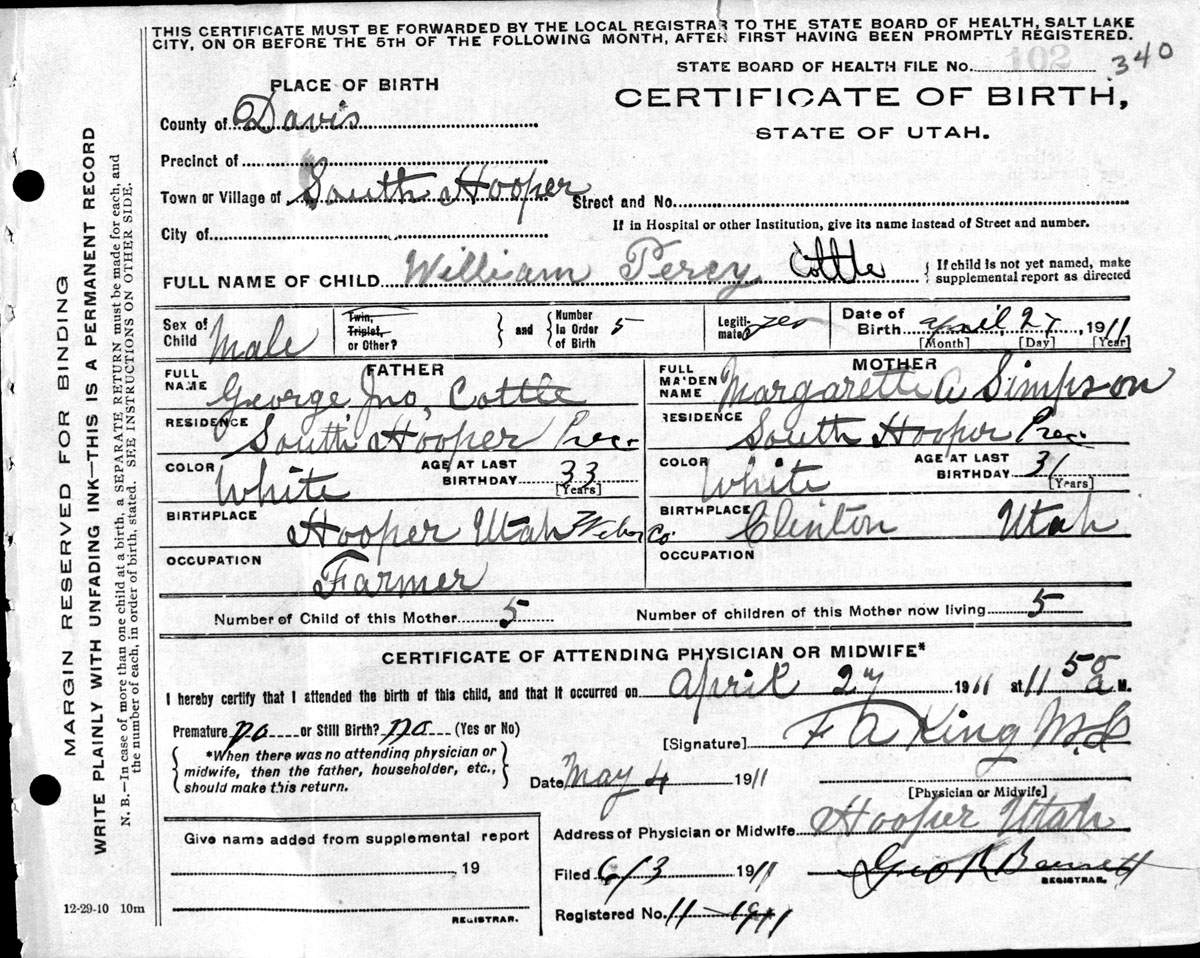 THIS CERTIFICATE MUST BE FORWARDED BY THE LOCAL REGISTRAR TO THE STATE BOARD OF HEALTH, SALT LAKE
CITY, ON OR BEFORE THE 5TH OF THE FOLLOWING MONTH, AFTER FIRST HAVING BEEN PROMPTLY REGISTERED.
STATE BOARD OF HEALTH FILE No. 102 340
PLACE OF BIRTH
CERTIFICATE OF BIRTH,
STATE OF UTAH.
County of Davis
Precinct of
Town or Village of South Hooper Street and No.
City of
If in Hospital or other Institution, give its name instead of Street and number.
FULL NAME OF CHILD William Percy Cottle { If child is not yet named, make supplemental report as directed
Sex of Child Male Twin, Triplet, or Other? } and { Number In Order of Birth 5 Legitimate? yes Date of Birth April 27, 1911
[Month] [Day] [Year]
FATHER MOTHER
FULL NAME George Jno, Cottle FULL MAIDEN NAME Margarette A Simpson
RESIDENCE South Hooper Prec. RESIDENCE South Hooper Prec.
COLOR White AGE AT LAST BIRTHDAY 33 [Years] COLOR White AGE AT LAST BIRTHDAY 31 [Years]
BIRTHPLACE Hooper Utah Weber Co. BIRTHPLACE Clinton Utah
OCCUPATION Farmer OCCUPATION
Number of Child of this Mother 5 Number of children of this Mother now living 5
CERTIFICATE OF ATTENDING PHYSICIAN OR MIDWIFE*
I hereby certify that I attended the birth of this child, and that it occurred on April 27 1911 at 11 50 a M.
Premature no or Still Birth? no (Yes or No)
[Signature] F A King M.D
{ *When there was no attending physician or midwife, then the father, householder, etc., should make this return. }
Date May 4 1911
[Physician or Midwife]
Address of Physician or Midwife Hooper Utah
Give name added from supplemental report
, 19
REGISTRAR.
Filed 6/3 1911 Geo R Bennett
REGISTRAR.
Registered No. 11 - 1911
12-29-10 10m
MARGIN RESERVED FOR BINDING
WRITE PLAINLY WITH UNFADING INK—THIS IS A PERMANENT RECORD
N. B.—In case of more than one child at a birth, a SEPARATE RETURN must be made for each, and
the number of each, in order of birth, stated. SEE INSTRUCTIONS ON OTHER SIDE.